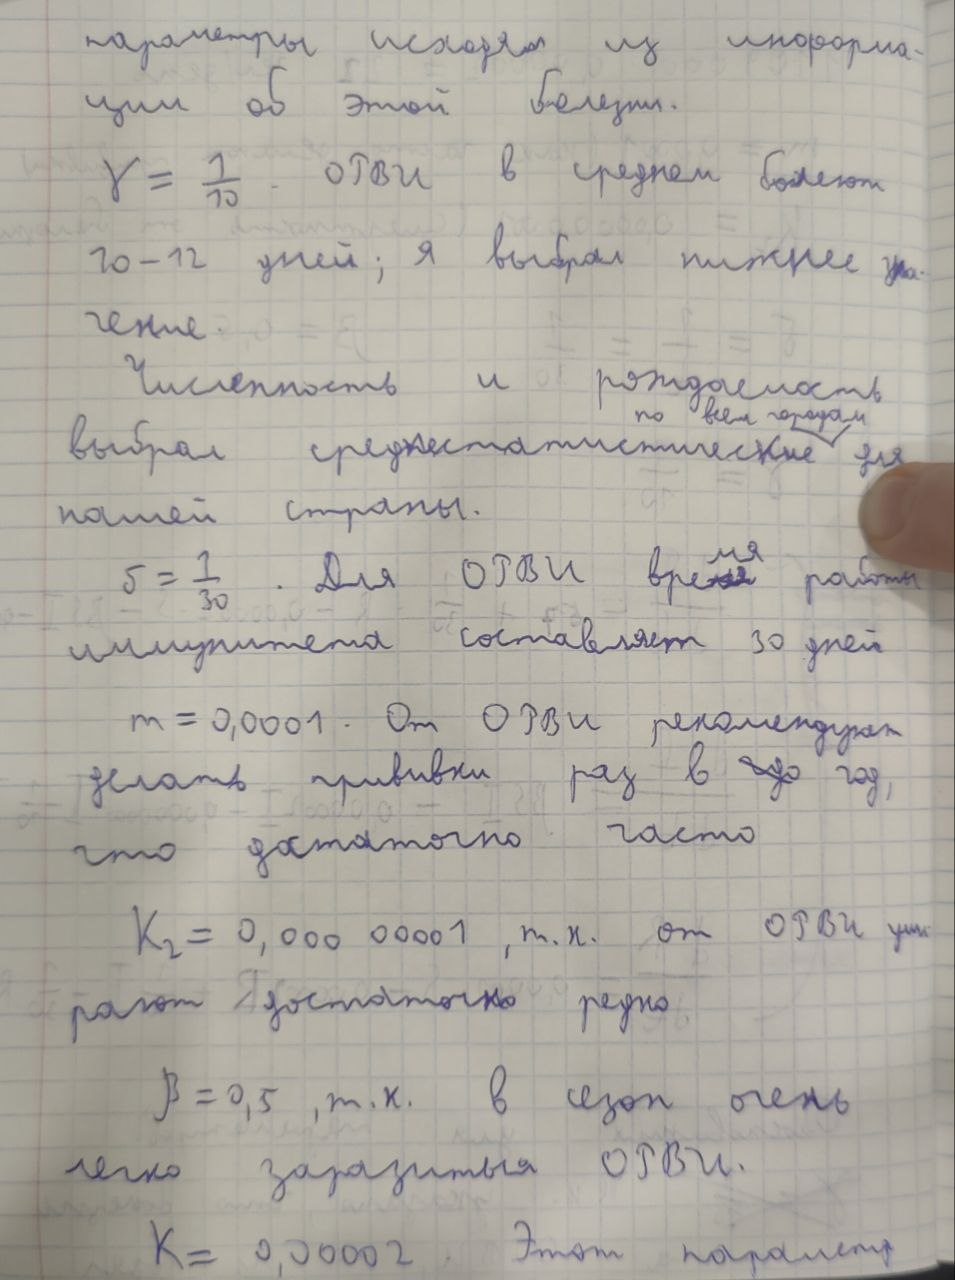 параметры исходя из информа-
ции об этой болезни.
γ = 1/10. ОРВИ в среднем болеют
10-12 дней; я выбрал нижнее зна-
чение.
Численность и рождаемость
по всем городам
выбрал среднестатистические для
нашей страны.
δ = 1/30. Для ОРВИ время работы
иммунитета составляет 30 дней
m = 0,0001. От ОРВИ рекомендуют
делать прививки раз в год,
что достаточно часто
K₂ = 0,000 00001, т.к. от ОРВИ уми
рают достаточно редко
β = 0,5, т.к. в сезон очень
легко заразиться ОРВИ.
K = 0,00002. Этот параметр